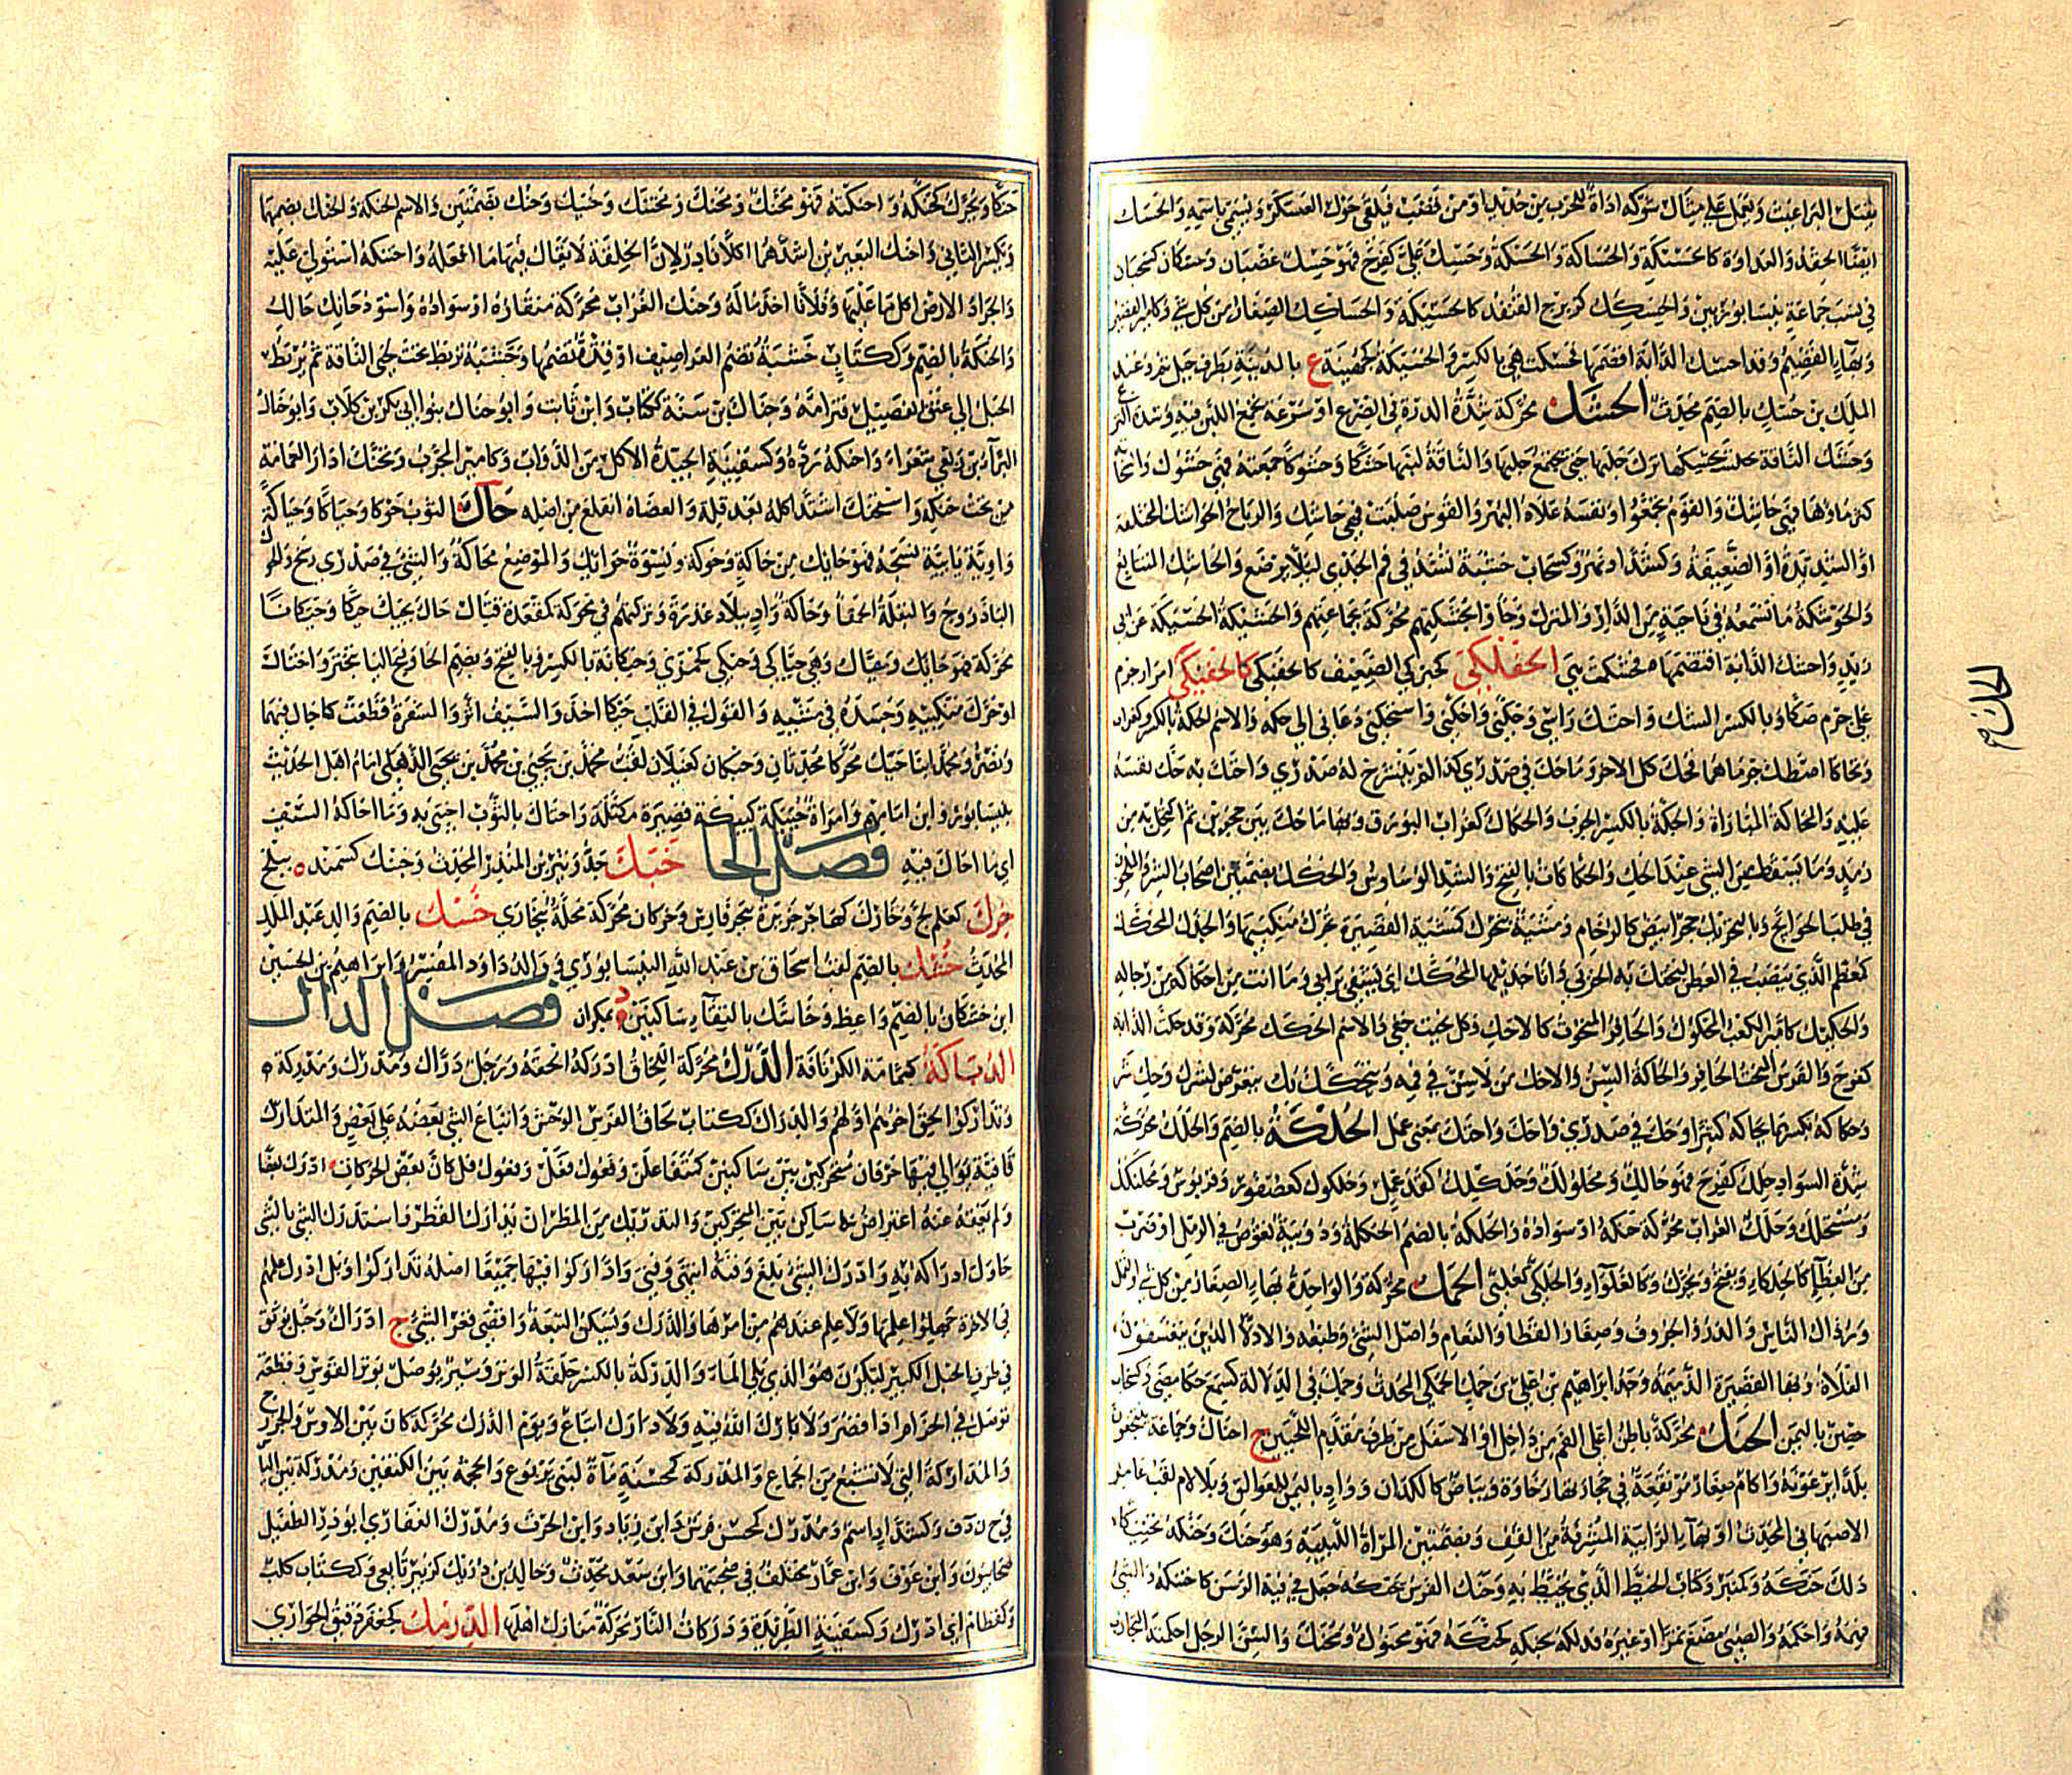 يقتل البراغيث ويعمل على مثال شوكه اداة للحرب من حديد او من قصب فيلقى حول العسكر ويسمى باسمه والحسك
ايضا الحقد والعداوة كالحسيكة والحساكة والحسكة وحسك علي كفرح فهو حسك غضبان وحسكان كسحبان
في نسب جماعة بنيسابوريين والحسكك كزبرج القنفذ كالحسيكة والحساكك الصغار من كل شي وكامير القصير
وبهاء القضيم وقد احسك الدابة اقضمها فحسكت هي بالكسر والحسيكة كجهينة ع بالمدينة بطرف جبل ذباب وعبد
الملك بن حسك بالضم محدث الحشك محركة شدة الدرة في الضرع او سرعة تجمع اللبن فيه وشدة النزع
وحشك الناقة تركها لم يحلبها حتى تجمع لبنها والناقة لبنها حشكا وحشوكا جمعته فهي حشوك والنخلة
كثر ماؤها فهي حاشك والقوم تجمعوا ونفسه علاه البهر والقوس صلبت فهي حاشك والرياح الحواشك المختلفة
او الشديدة او الضعيفة وكشداد نهر وكسحاب خشبة تشد في فم الجدي ليلا يرضع والحاشك المتتابع
زيد واحشك الدابة اقضمها فحشكت هي الحفلكى كحبركى الضعيف كالحفنكى كالحفيكى امرار جرم
على جرم صكا وبالكسر الشك واحك واحكني واستحكني دعاني الى حكه والاسم الحكة بالكسر وكغراب
وتحاكا اصطك جرماهما فحك كل الاخر وما حك في صدري كذا لم ينشرح له صدري واحتك به حك نفسه
عليه والمحاكة المباراة والحكة بالكسر الجرب والحكاك كغراب البورق وبهاء ما حك بين حجرين ثم اكتحل به من
رمد وما يسقط من الشي عند الحك والحكاكات بالفتح والشد الوساوس والحكك بضمتين اصحاب الشر والملحون
في طلب الحوائج وبالتحريك حجر ابيض كالرخام ومشية بتحرك كمشية القصيرة تحرك منكبيها والجذل المحكك
كمعظم الذي ينصب في العطن لتحتك به الجربى وانا جذيلها المحكك اي يستشفى برايي وما انت من احكاكه من رجاله
والحكيك كامير الكعب المحكوك والحافر المنحوت كالاحك وكل نحيت خفي والاسم الحكك محركة وقد حكت الدابة
كفرح والفرس المنحت الحافر والحاكة السن والاحك من لا سن في فمه ويتحكك بك يتعرض لشرك وحك شر
وحكاكه بكسرهما يحاكه كثيرا وحك في صدري واحك واحتك بمعنى عمل الحلكة بالضم والحلك محركة
شدة السواد حلك كفرح فهو حالك ومحلولك وحلكك كقذعمل وحلكوك كعصفور وقربوس ومحلنكك
ومستحلك وحلك الغراب محركة حنكه او سواده والحلكة بالضم الحكلة ودويبة تغوص في الرمل او ضرب
من العظاء كالحلكاء ويفتح ويحرك وكالغلواء والحلكى كغلبى الحمك محركة والواحدة بهاء الصغار من كل شي والنمل
ورذال الناس والذر والخروف وصغار القطا والنعام واصل الشي وطبعه والادلا الذين يتعسفون
الفلاة وبهاء القصيرة الدميمة وجد ابراهيم بن علي بن حمك الحمكي المحدث وحمك في الدلالة كسمع حمكا مضى وكتاب
حصن باليمن الحنك محركة باطن اعلى الفم من داخل او الاسفل من طرف مقدم اللحيين ج احناك وجماعة ينتجعون
بلدا يرعونه واكام صغار مرتفعة في حجارتها رخاوة وبياض كالكدان وواد باليمن للعوالق وبلا لام لقب عامر
الاصبهاني المحدث او بهاء الرابية المشرفة من القف وبضمتين المراة اللبيبة وهو حنك وحنكه تحنيكا
دلك حنكه وكمنبر وكتاب الخيط الذي يحنط به وحنك الفرس يحنكه جعل في فيه الرسن كاحتنكه والشي
فهمه واحكمه والصبي مضغ تمرا او غيره فدلكه بحنكه كحنكه فهو محنوك ومحنك والسن الرجل احكمته التجارب
الحك م
حنكا ويحرك كحنكه واحنكته فهو محنك ومحنك ومحتنك وحنيك وحنك بضمتين والاسم الحنكة والحنك بضمهما
وبكسر الثاني واحنك البعيرين اشدهما اكلا نادر لان الخلقة لا يقال فيها ما افعله واحتنكه استولى عليه
والجراد الارض اكل ما عليها وفلانا اخذ ماله وحنك الغراب محركة منقاره او سواده واسود حانك حالك
والحنكة بالضم وككتاب خشبة تضم العراصيف او قدة تضمها وخشبة تربط تحت لحي الناقة ثم يربط
الحبل الى عنق الفصيل فترامه وحناك بن سنة ككتاب وابن ثابت وابو حناك بنو ابي بكر بن كلاب وابو حناك
البراء بن ربعي شعراء واحنكه رده وكسفينة الجيدة الاكل من الدواب وكامير المجرب وتحنك ادار العمامة
من تحت حنكه واستحنك اشتد اكله بعد قلة والعضاه انقلع من اصله حاك الثوب حوكا وحياكا وحياكة
واوية يائية نسجه فهو حائك من حاكة وحوكة ونسوة حوائك والموضع محاكة والشي في صدري رسخ والحوك
الباذروج والبقلة الحمقا وحاكة واد ببلاد عذرة وتركتهم في محوكة كمقعدة قتال حاك يحيك حيكا وحيكانا
محركة فهو حائك وحياك وهي حياكة وحيكى كجمزى وحيكانة بالكسر وبالفتح وبضم الحاء وفتح اليا تبختر واختال
او حرك منكبيه وجسده في مشيه والقول في القلب حيكا اخذ والسيف اثر والشفرة قطعت كاحاك فيهما
ونصر ومحمد ابنا حيك محركا محدثان وحيكان كعيلان لقب محمد بن يحيى بن محمد بن يحيى الذهلي امام اهل الحديث
بنيسابور وابن امامهم وامراة حييكة كييكة قصيرة مكتلة واحتاك بالثوب احتبى به وما احاكه السيف
اي ما احاك فيه فصل الخا خبك جد وثير بن المنذر المحدث وخبنك كسمند ه ببلخ
خرك كعلم لج وخارك كهاجر جزيرة ببحر فارس وخركان محركة محلة ببخارى خسك بالضم والد عبد الملك
المحدث خشك بالضم لقب اسحاق بن عبد الله النيسابوري ووالد داود المفسر وابراهيم بن الحسين
ابن خشكان بالضم واعظ وخاشك بالتقاء ساكنين د بمكران فصل الدال
الدباكة كثمامة الكرنافة الدرك محركة اللحاق ادركه الحقه ورجل دراك ومدرك ومدركة
وتداركوا لحق اخرهم اولهم والدراك ككتاب لحاق الفرس الوحش واتباع الشي بعضه على بعض والمتدارك
قافية توالى فيها حرفان متحركان بين ساكنين كمتفاعلن وفعول فعل وفعول فل كان بعض الحركات ادرك بعضا
ولم يعقه عنه اعتراض ساكن بين المتحركين والتدريك من المطر ان يدارك القطر واستدرك الشي بالشي
حاول ادراكه به وادرك الشي بلغ وقته انتهى وفني واداركوا فيها جميعا اصله تداركوا وبل ادرك علمهم
في الاخرة جهلوا علمها ولا علم عندهم من امرها والدرك ويسكن التبعة واقصى قعر الشي ج ادراك وحبل يوثق
في طرف الحبل الكبير ليكون هو الذي يلي الماء والدركة بالكسر حلقة الوتر وسير يوصل بوتر القوس وقطعة
توصل في الحزام اذا قصر ولا بارك الله فيه ولا دارك اتباع ويوم الدرك محركة كان بين الاوس والخزرج
والمتداركة التي لا تشبع من الجماع والمدركة كمحسنة ماءة لبني يربوع والحجمة بين الكتفين ومدركة بن الياس
في خ ن د ف وكشداد اسم ومدرك كمحسن فرس وابن زياد وابن الحرث ومدرك الغفاري ابو ذر الطفيل
صحابيون وابن عوف وابن عمار مختلف في صحبتهما وابن سعد محدث وخالد بن دريك كزبير تابعي وككتاب كلب
وكقطام اي ادرك وكسفينة الطريدة ودركات النار محركة منازل اهلها الدرمك كجعفر دقيق الحوارى